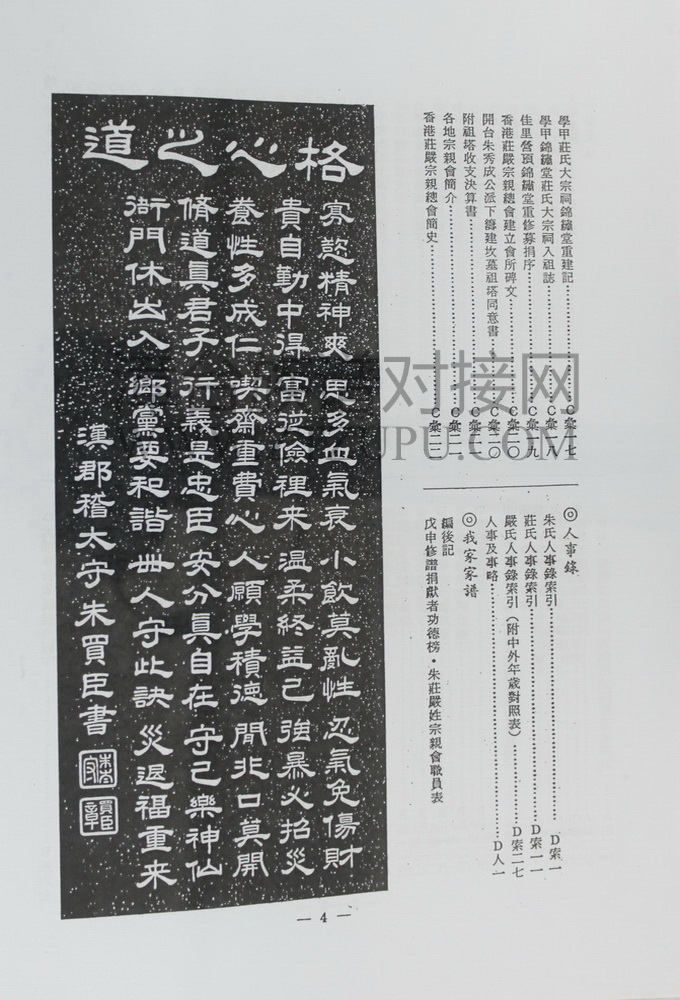 學甲莊氏大宗祠錦繡堂重建記………C彙一七
學甲錦繡堂莊氏大宗祠入祖誌………C彙一八
佳里營頂錦繡堂重修募捐序………C彙一九
香港莊嚴宗親總會建立會所碑文………C彙二〇
開台朱秀成公派下籌建坟墓祖塔同意書…C彙二〇
附祖塔收支決算書………C彙二一
各地宗親會簡介………C彙二一
香港莊嚴宗親總會簡史………C彙二二
◎人事錄
朱氏人事錄索引………D索一
莊氏人事錄索引………D索一一
嚴氏人事錄索引(附中外年歲對照表)………D索二七
人事及事略………D人一
◎我家家譜
編後記
戊申修譜捐獻者功德榜・朱莊嚴姓宗親會職員表
格心之道
寡慾精神爽 思多血氣衰 小飲莫亂性 忍氣免傷財
貴自勤中得 富從儉裡來 溫柔終益己 強暴必招災
養性多成仁 喫齋重費心 人願學積德 閒非口莫開
脩道真君子 行義是忠臣 安分真自在 守己樂神仙
衙門休出入 鄉黨要和諧 世人守此訣 災退福重来
漢郡稽太守朱買臣書
— 4 —
对接网